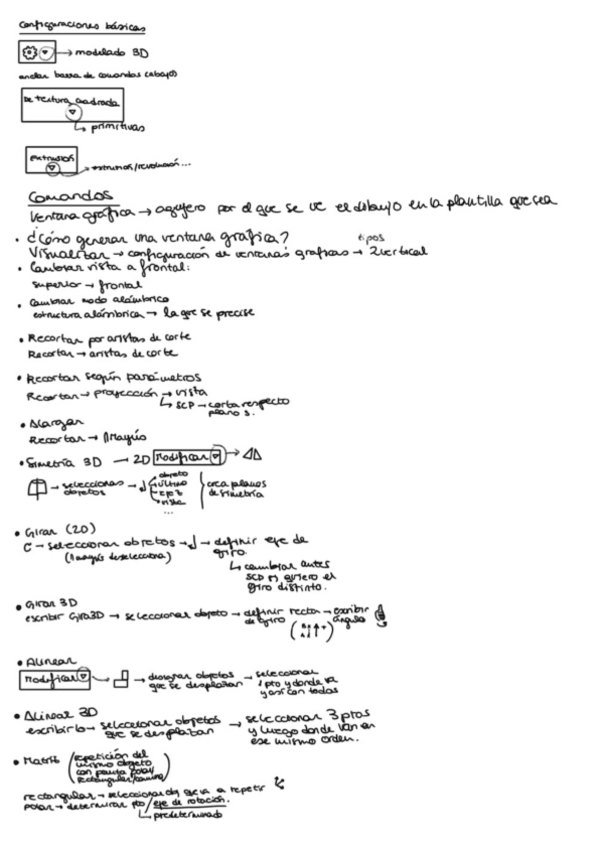 Configuraciones básicas
→ modelado 3D
anclar barra de comandos (abajo)
De textura cuadrada
↳ primitivas
extrusión
→ extrusion/revolución...
Comandos
Ventana gráfica → agujero por el que se ve el dibujo en la plantilla que sea
• ¿Cómo generar una ventana gráfica? tipos
Visualizar → configuración de ventanas graficas → 2 vertical
• Cambiar vista a frontal:
superior → frontal
• Cambiar modo alámbrico
estructura alámbrica → la que se precise
• Recortar por aristas de corte
Recortar → aristas de corte
• Recortar según parámetros
Recortar → proyección → vista
↳ SCP → corta respecto
plano s.
• Alargar
Recortar → ⇧Mayús
• Simetría 3D → 2D Modificar →
→ seleccionas → objeto
objetos último
vista
...
crea planos
de simetría
• Girar (2D)
C → seleccionar objetos → ↲ → definir eje de
(⇧mayús deselecciona) giro.
↳ cambiar antes
SCP si quiero el
giro distinto.
• Girar 3D
escribir Gira3D → seleccionar objeto → definir recta → escribir
de giro ángulo
• Alinear
Modificar → → designar objetos → seleccionar
que se desplazan 1 pto y donde va
y así con todas
• Alinear 3D
escribirlo → seleccionar objetos → seleccionar 3 ptos
que se desplazan y luego donde van en
ese mismo orden.
• Matriz (repetición del
mismo objeto
con pauta polar/
rectangular/camino)
rectangular → seleccionar obj que va a repetir
polar → determinar pto/eje de rotación.
↳ predeterminado